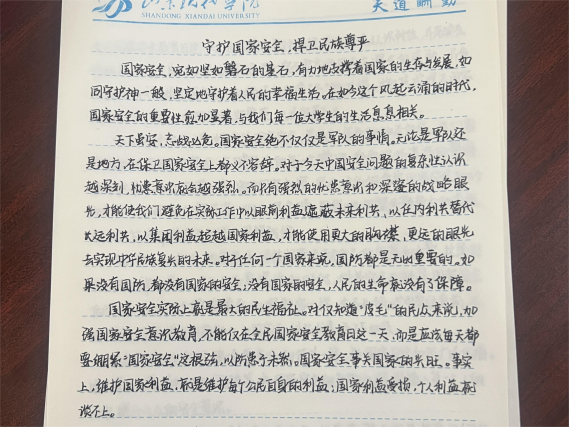 山东现代学院
SHANDONG XIANDAI UNIVERSITY
天道酬勤
守护国家安全，捍卫民族尊严
国家安全，宛如坚如磐石的基石，有力地支撑着国家的生存与发展，如
同守护神一般，坚定地守护着人民的幸福生活。在如今这个风起云涌的时代，
国家安全的重要性愈加显著，与我们每一位大学生的生活息息相关。
天下虽安，忘战必危。国家安全绝不仅仅是军队的事情。无论是军队还
是地方，在保卫国家安全上都义不容辞。对于今天中国安全问题的复杂性认识
越深刻，忧患意识就会越强烈。而只有强烈的忧患意识和深邃的战略眼
光，才能使我们避免在实际工作中以眼前利益遮蔽未来利益，以任内利共替代
长远利共，以集团利益超越国家利益，才能使用更大的胸襟，更远的眼光
去实现中华民族复兴的未来。对于任何一个国家来说，国防都是无比重要的。如
果没有国防，都没有国家的安全；没有国家的安全，人民的生命就没有了保障。
国家安全实际上就是最大的民生福祉。对仅知道“皮毛”的民众来说，加
强国家安全意识教育，不能仅在全民国家安全教育日这一天，而是应该每天都
要绷紧“国家安全”这根弦，以防患于未然。国家安全事关国家的兴旺。事实
上，维护国家利益，就是维护每个公民自身的利益，国家利益受损，个人利益就
谈不上。